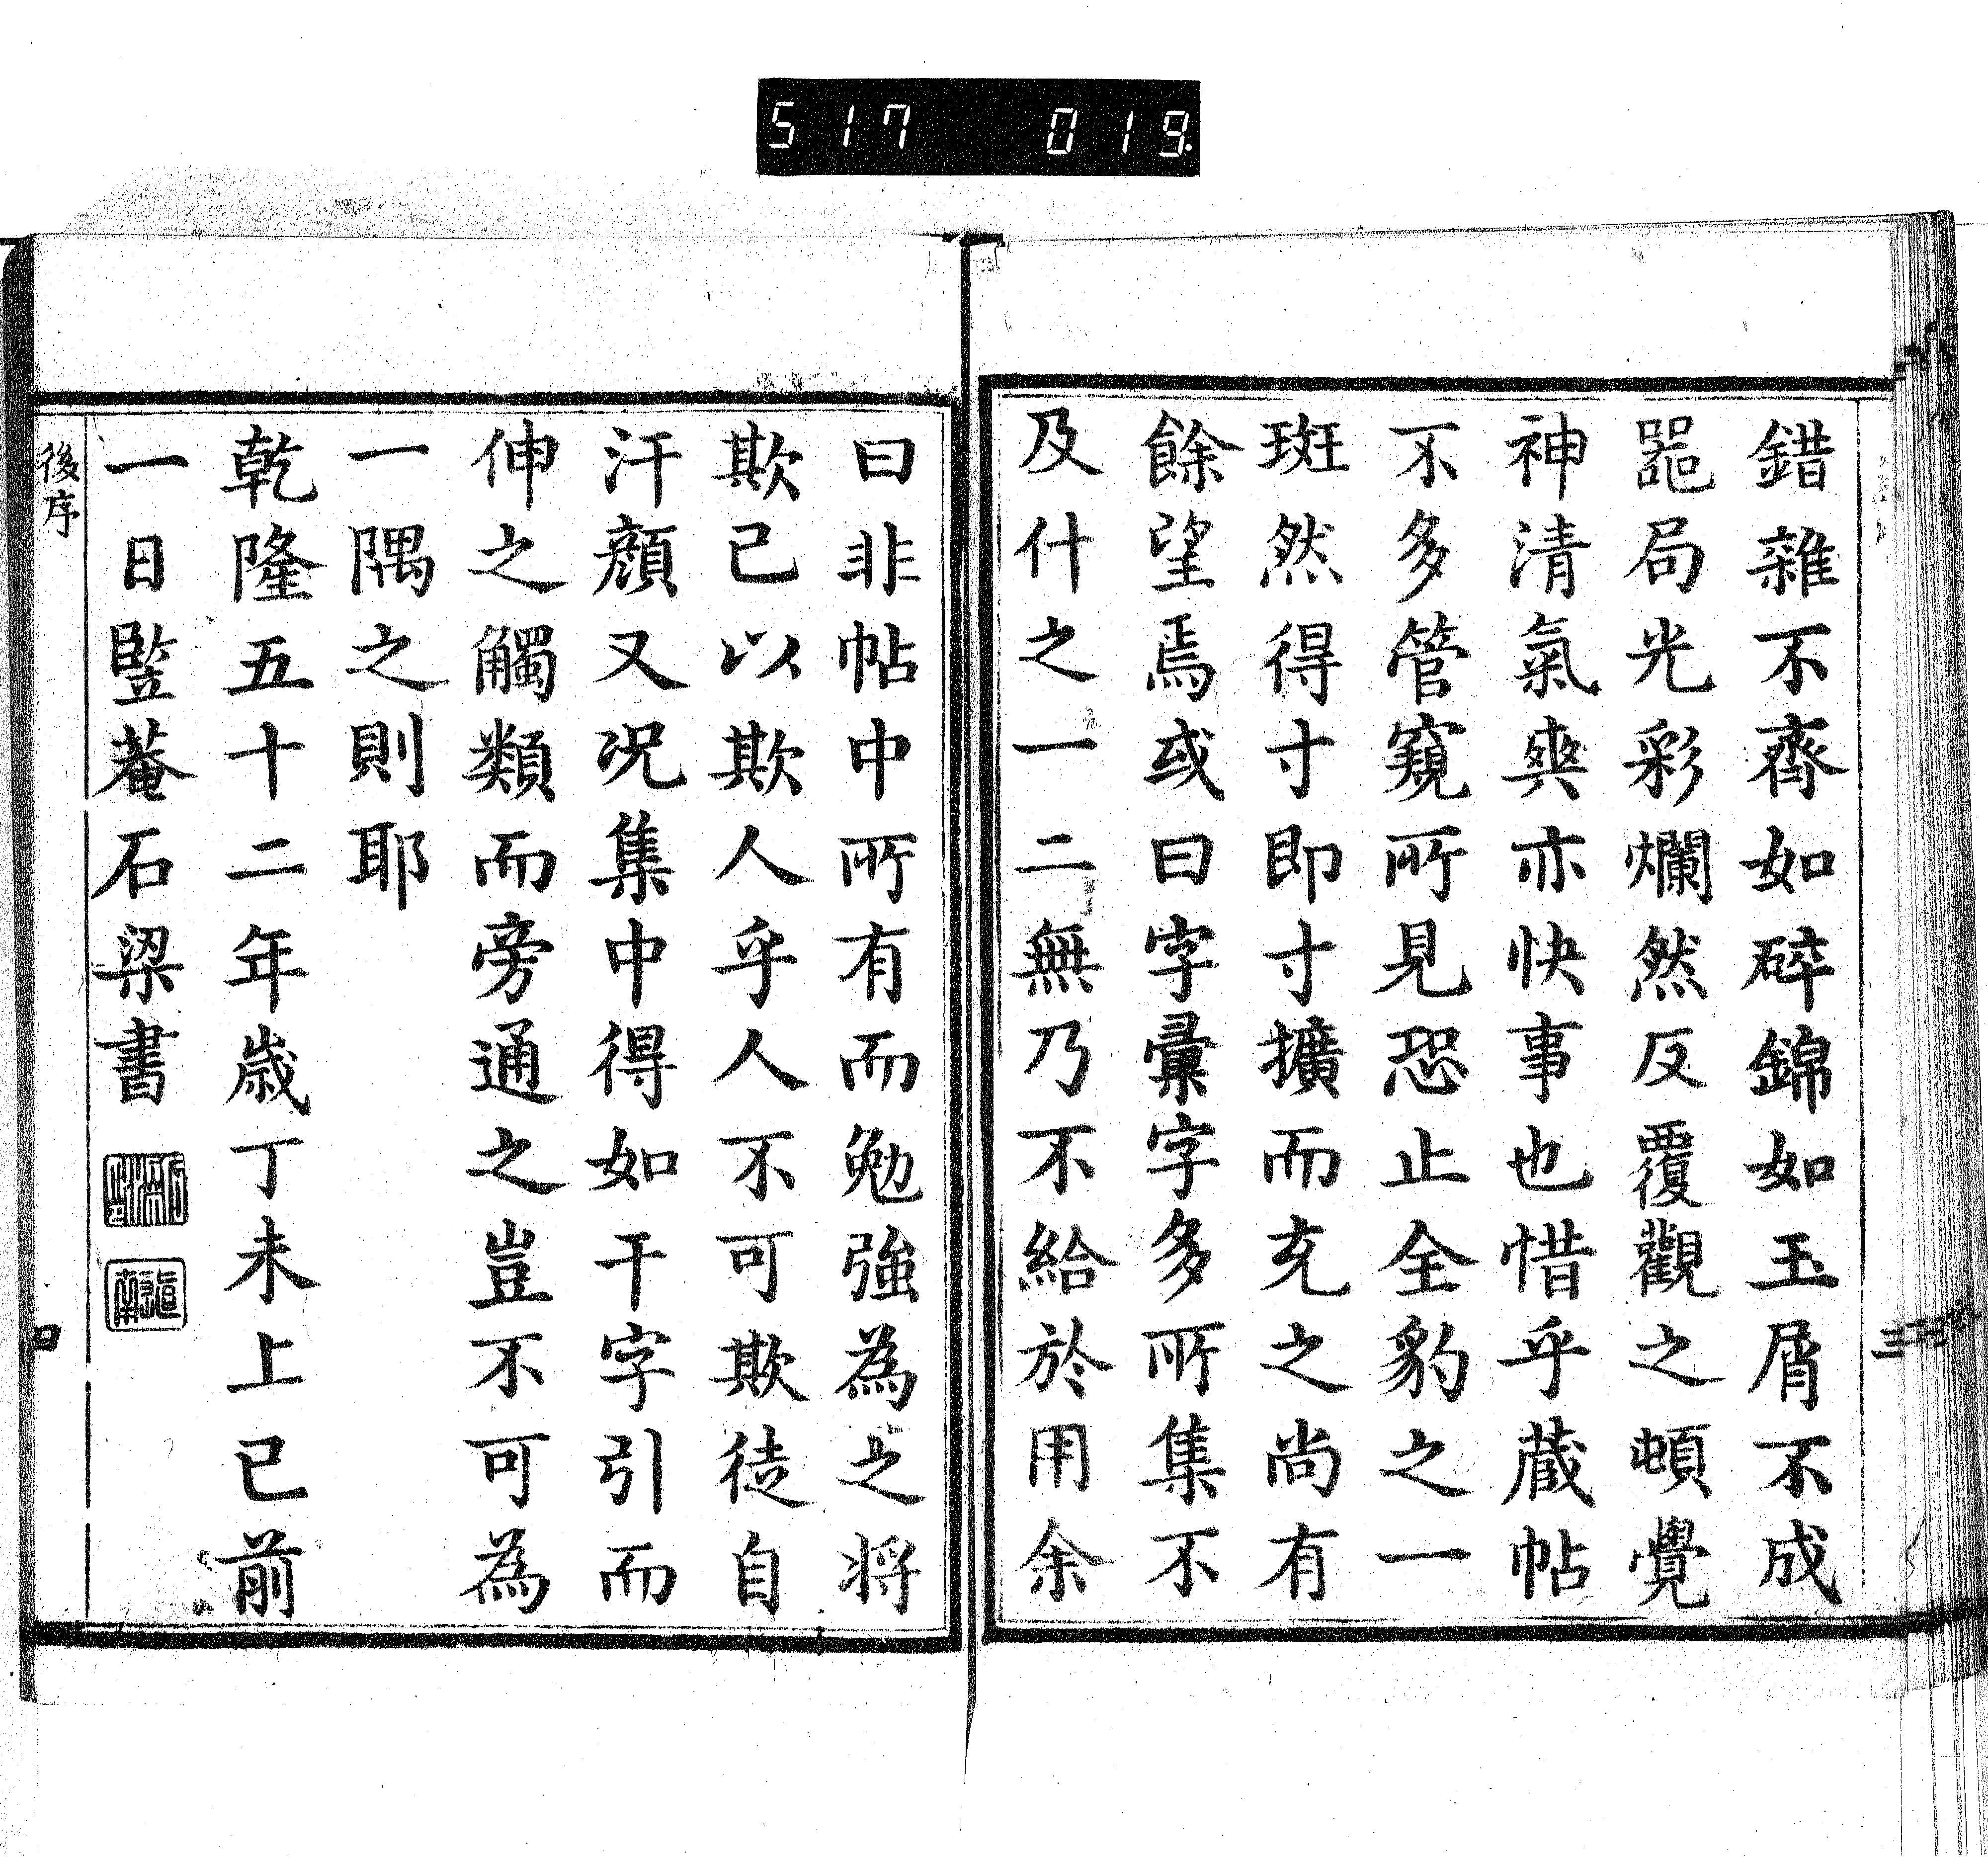 517 019
錯雜不齊如碎錦如玉屑不成
噐局光彩爛然反覆觀之頓覺
神清氣爽亦快事也惜乎蔵帖
不多管窺所見恐止全豹之一
斑然得寸即寸擴而充之尚有
餘望焉或曰字彙字多所集不
及什之一二無乃不給於用余
曰非帖中所有而勉強為之将
欺已以欺人乎人不可欺徒自
汗顔又况集中得如干字引而
伸之觸類而旁通之豈不可為
一隅之則耶
乾隆五十二年歲丁未上巳前
一日竪菴石梁書
後序